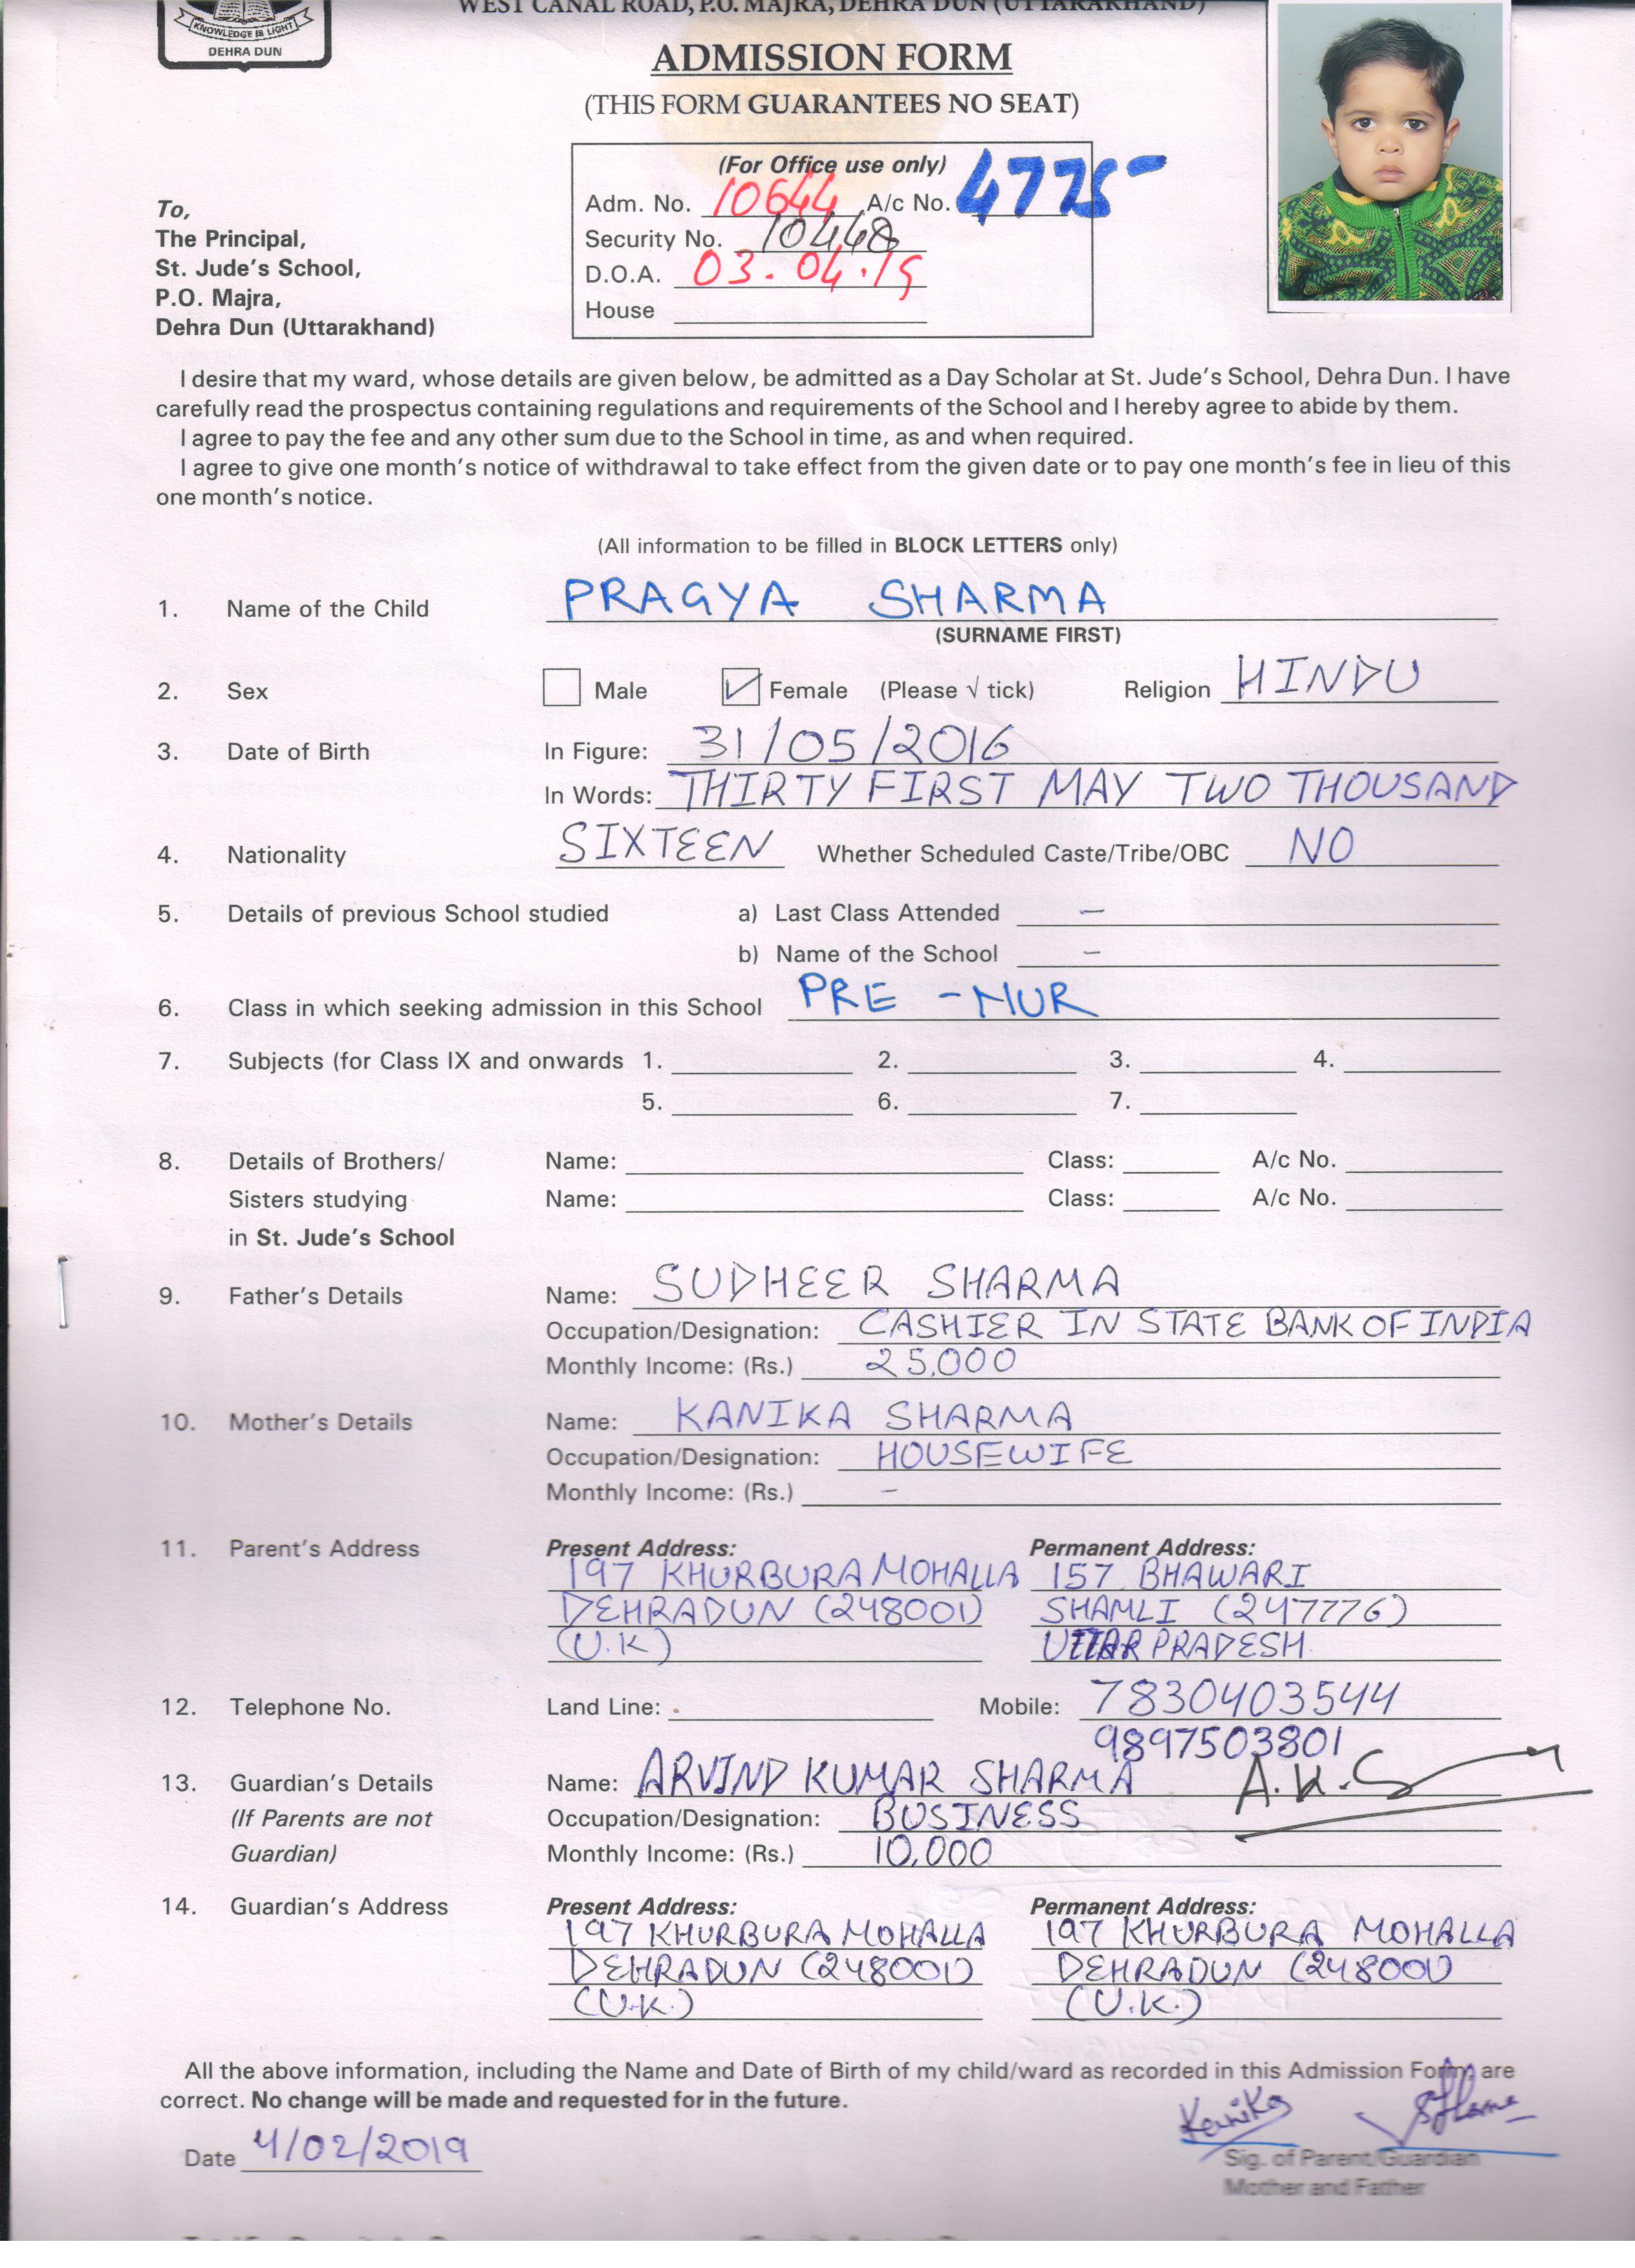 WEST CANAL ROAD, P.O. MAJRA, DEHRA DUN (UTTARAKHAND)
KNOWLEDGE IS LIGHT
DEHRA DUN
ADMISSION FORM
(THIS FORM GUARANTEES NO SEAT)
(For Office use only)
Adm. No. 10644 A/c No. 4775
Security No. 10448
D.O.A. 03.04.19
House
To,
The Principal,
St. Jude's School,
P.O. Majra,
Dehra Dun (Uttarakhand)
I desire that my ward, whose details are given below, be admitted as a Day Scholar at St. Jude's School, Dehra Dun. I have
carefully read the prospectus containing regulations and requirements of the School and I hereby agree to abide by them.
I agree to pay the fee and any other sum due to the School in time, as and when required.
I agree to give one month's notice of withdrawal to take effect from the given date or to pay one month's fee in lieu of this
one month's notice.
(All information to be filled in BLOCK LETTERS only)
1. Name of the Child PRAGYA SHARMA
(SURNAME FIRST)
2. Sex Male ✓ Female (Please √ tick) Religion HINDU
3. Date of Birth In Figure: 31/05/2016
In Words: THIRTY FIRST MAY TWO THOUSAND
4. Nationality SIXTEEN Whether Scheduled Caste/Tribe/OBC NO
5. Details of previous School studied a) Last Class Attended –
b) Name of the School –
6. Class in which seeking admission in this School PRE - NUR
7. Subjects (for Class IX and onwards 1. 2. 3. 4.
5. 6. 7.
8. Details of Brothers/ Name: Class: A/c No.
Sisters studying Name: Class: A/c No.
in St. Jude's School
9. Father's Details Name: SUDHEER SHARMA
Occupation/Designation: CASHIER IN STATE BANK OF INDIA
Monthly Income: (Rs.) 25,000
10. Mother's Details Name: KANIKA SHARMA
Occupation/Designation: HOUSEWIFE
Monthly Income: (Rs.) –
11. Parent's Address Present Address: Permanent Address:
197 KHURBURA MOHALLA 157 BHAWARI
DEHRADUN (248001) SHAMLI (247776)
(U.K) UTTAR PRADESH
12. Telephone No. Land Line: Mobile: 7830403544
9897503801
13. Guardian's Details Name: ARVIND KUMAR SHARMA A.K.S
(If Parents are not Occupation/Designation: BUSINESS
Guardian) Monthly Income: (Rs.) 10,000
14. Guardian's Address Present Address: Permanent Address:
197 KHURBURA MOHALLA 197 KHURBURA MOHALLA
DEHRADUN (248001) DEHRADUN (248001)
(U.K.) (U.K.)
All the above information, including the Name and Date of Birth of my child/ward as recorded in this Admission Form, are
correct. No change will be made and requested for in the future.
Kanika
Date 4/02/2019
Sig. of Parent/Guardian
Mother and Father